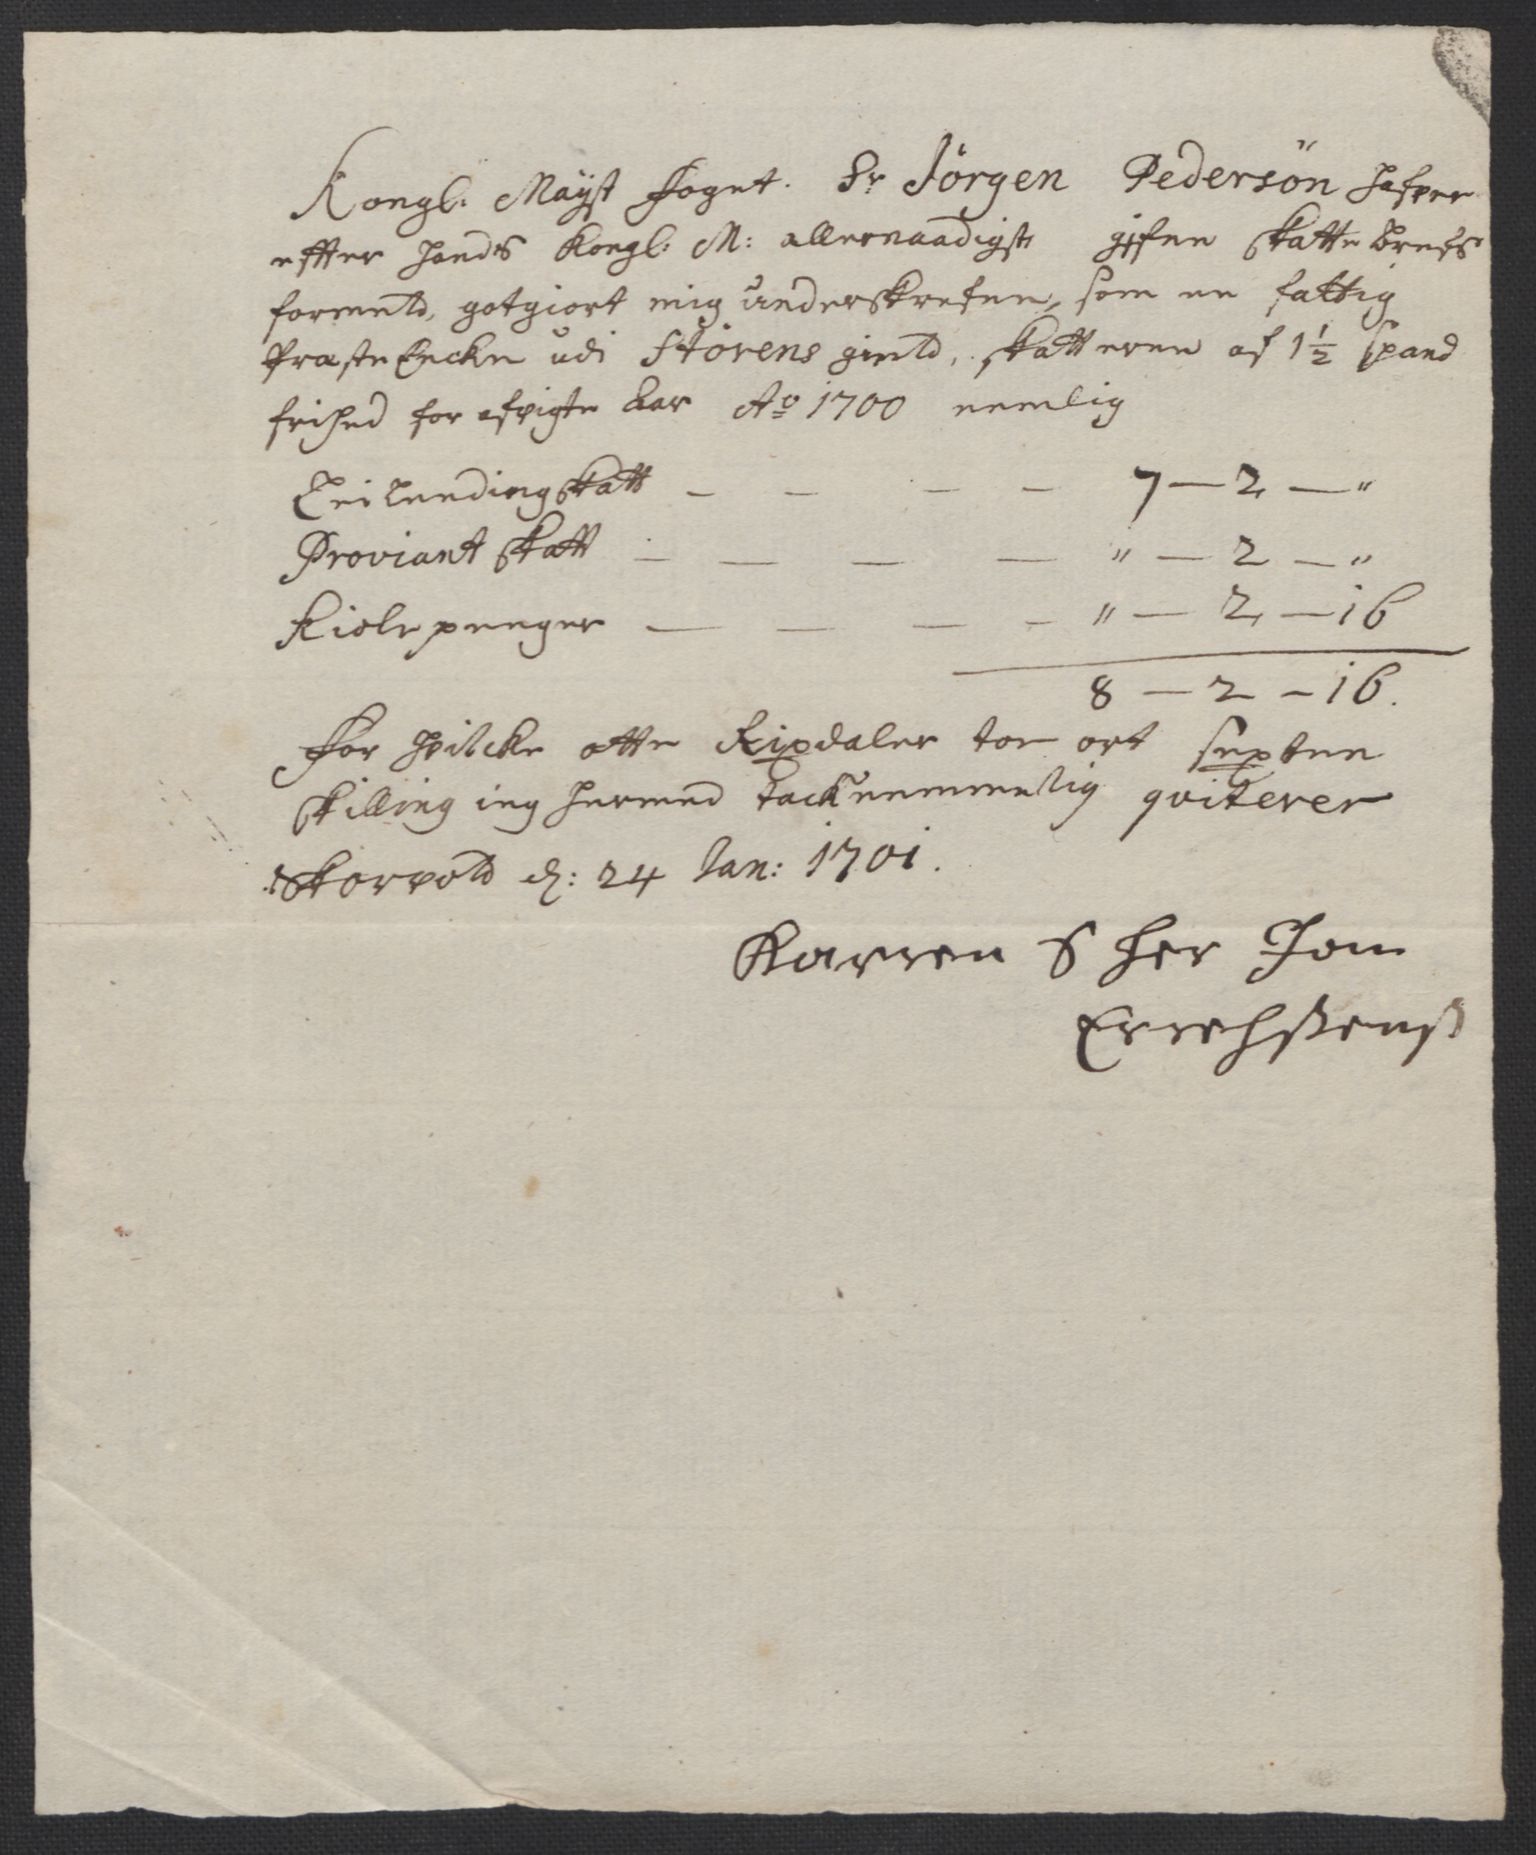 Kongl: Mayst foget. Sr Jörgen Pedersön hafver
effter hands Kongl: M: allernaadigste gifne Skatte brefs
formeld, gotgiort mig underskrefne, som en fattig
Præste Encke udi Störens gield, skatterne af 1½ Spand
frihed for afvigte Aar Ao 1700 nemlig
Leilendingskatt — — — — 7 — 2 — "
Proviant Skatt — — — — " — 2 — "
Kiolepenger — — — — " — 2 — 16
8 — 2 — 16.
For hvilcke otte Rixdaler toe ort sexten
skilling ieg hermed tacknemmelig qviterer
Skorvold d: 24 Jan: 1701.
Karren S her Jon
Errechsens